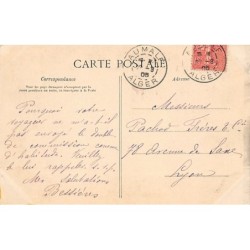 CARTE POSTALE
Correspondance
Adresse
AUMALE
ALGER
ALGER
Pourquoi votre
voyageur ne m'a-t-il
pas envoyé le double
de commission comme
d'habitude. Veuillez
lui rappeler s.v.p.
Mes Salutations
Bessière
Messieurs
Pachod Frères & Cie
78 Avenue de Saxe
Lyon